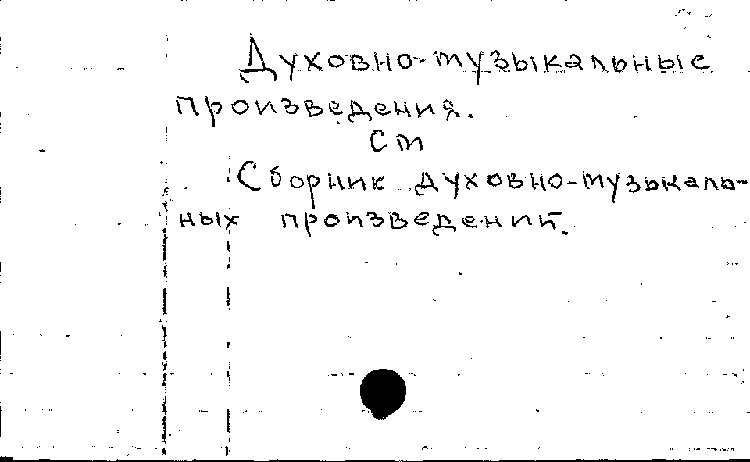 Духовно-музыкальные
произведения.
см
Сборник духовно-музыкаль-
ных произведений.